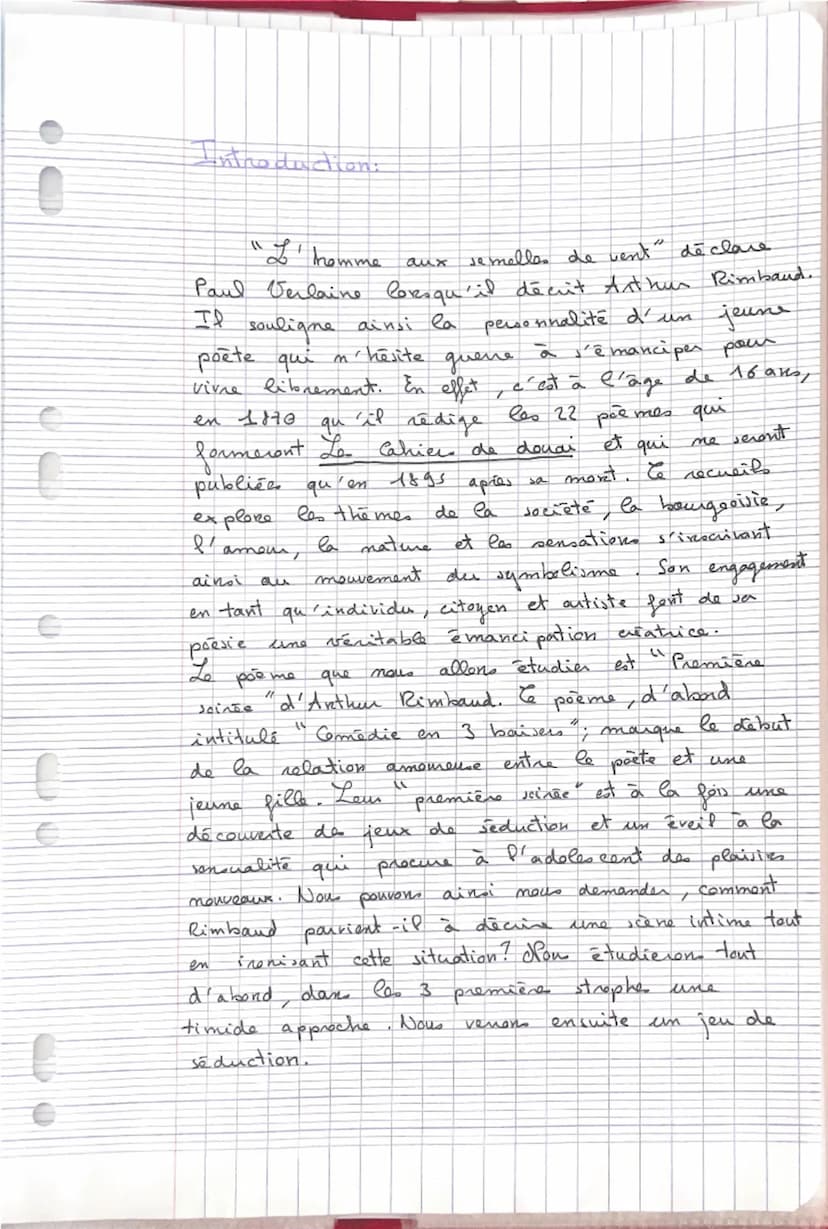 Introduction:
"L'homme aux semelles de vent" déclare
Paul Verlaine lorsqu'il décrit Arthur Rimbaud.
Il souligne ainsi la personnalité d'un jeune
poète qui n'hésite guere à s'émanciper pour
vivre librement. En effet, c'est à l'âge de 16 ans,
en 1870 qu'il rédige les 22 poèmes qui
formeront Le Cahier de douai et qui ne seront
publiées qu'en 1895 après sa mort. Ce recueils
explore les thèmes de la société, la bourgeoisie,
l'amour, la nature et les sensations s'inscrivant
ainsi au mouvement du symbolisme. Son engagement
en tant qu'individu, citoyen et artiste font de sa
poésie une véritable émancipation créatrice.
Le poème que nous allons étudier est "Première
soirée" d'Arthur Rimbaud. Ce poème, d'abord
intitulé "Comédie en 3 baisers"; marque le début
de la relation amoureuse entre le poète et une
jeune fille. Leur "première soirée" est à la fois une
découverte de jeux de séduction et un éveil à la
sensualité qui procure à l'adolescent des plaisirs
nouveaux. Nous pouvons ainsi nous demander, comment
Rimbaud parvient-il à décrire une scène intime tout
en ironisant cette situation? Nous étudierons tout
d'abord, dans les 3 première strophe une
timide approche. Nous verrons ensuite un jeu de
séduction.